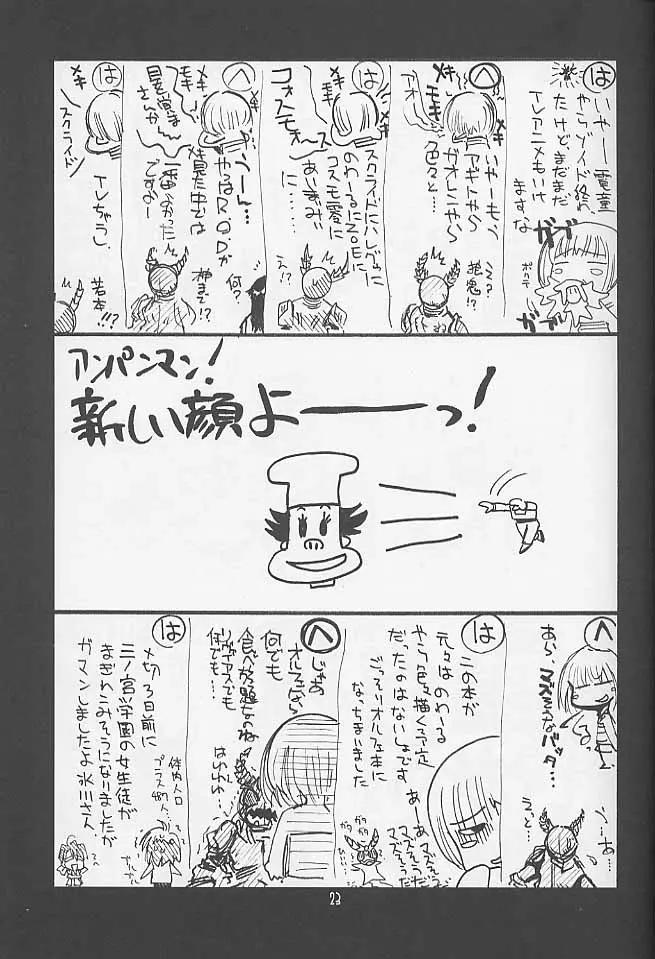 は
いやー電童
やらゾイド終れ
たけど、まだまだ
TVアニメもいけ
ますな
ガブ
ポリ
ガブ
へ
メキ
モキ
アオ
いやーもう
アギトやら
ガオレンやら
色々と…
は
メキ
コォスモォース
スクライドにハレグゥに
のわーるにZOEに
コスモ零に
あいまみぃ
に……
え!?
へ
メキ
うーん…
やっぱR.O.Dが
見た中では
一番よかった
ですよー
何?
神まで!?
は
メキ
スクライド
TVちゃう。
若本!?
アンパンマン!
新しい顔よーっ!
へ
あら、マズそうなバッタ…
う…あ
えっと…
は
この本が
元々はのわーる
やら色々描く予定
だったのはないしょです
ごっそりオルフェ本に
なっちまいました
あーあ
マズそうだ
マズそうだ
へ
じゃあ
オルフェなら
何でも
食べ放題なのね
リヴァイアスでも
何でも…
はわわわ…
は
〆切3日前に
三ノ宮学園の女生徒が
まぎれこみそうになりましたが
ガマンしましたよ氷川さん
体内人口
23